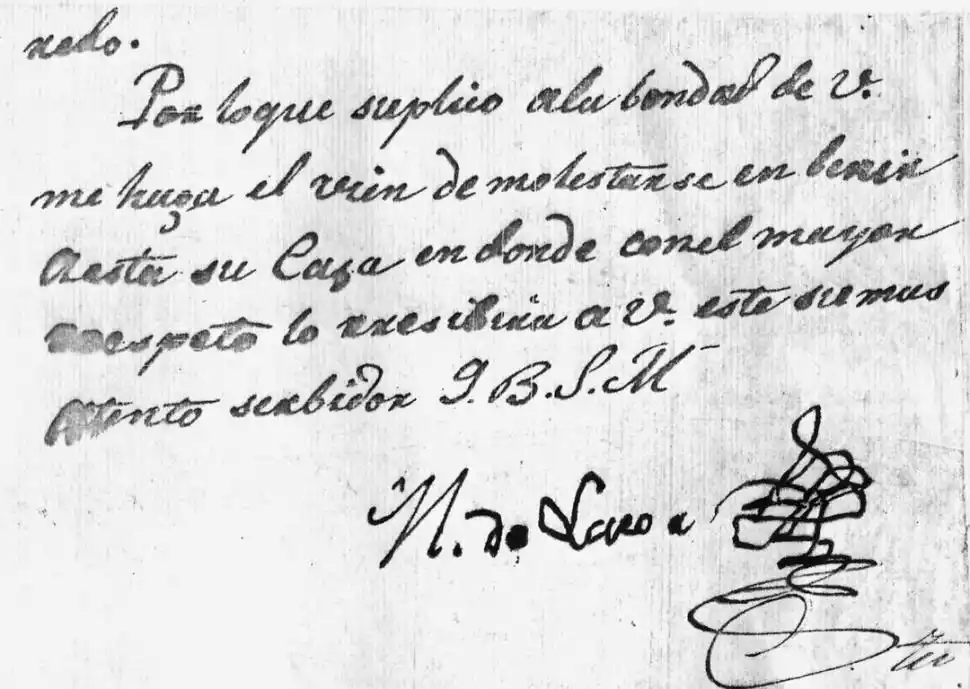 redo.
Por loque suplico ala bondad de V.
me haga el vien de molestarse en benir
Aesta su Caza en donde conel mayor
respeto lo resibira a V. este su mas
Atento serbidor Q. B. S. M
N. de